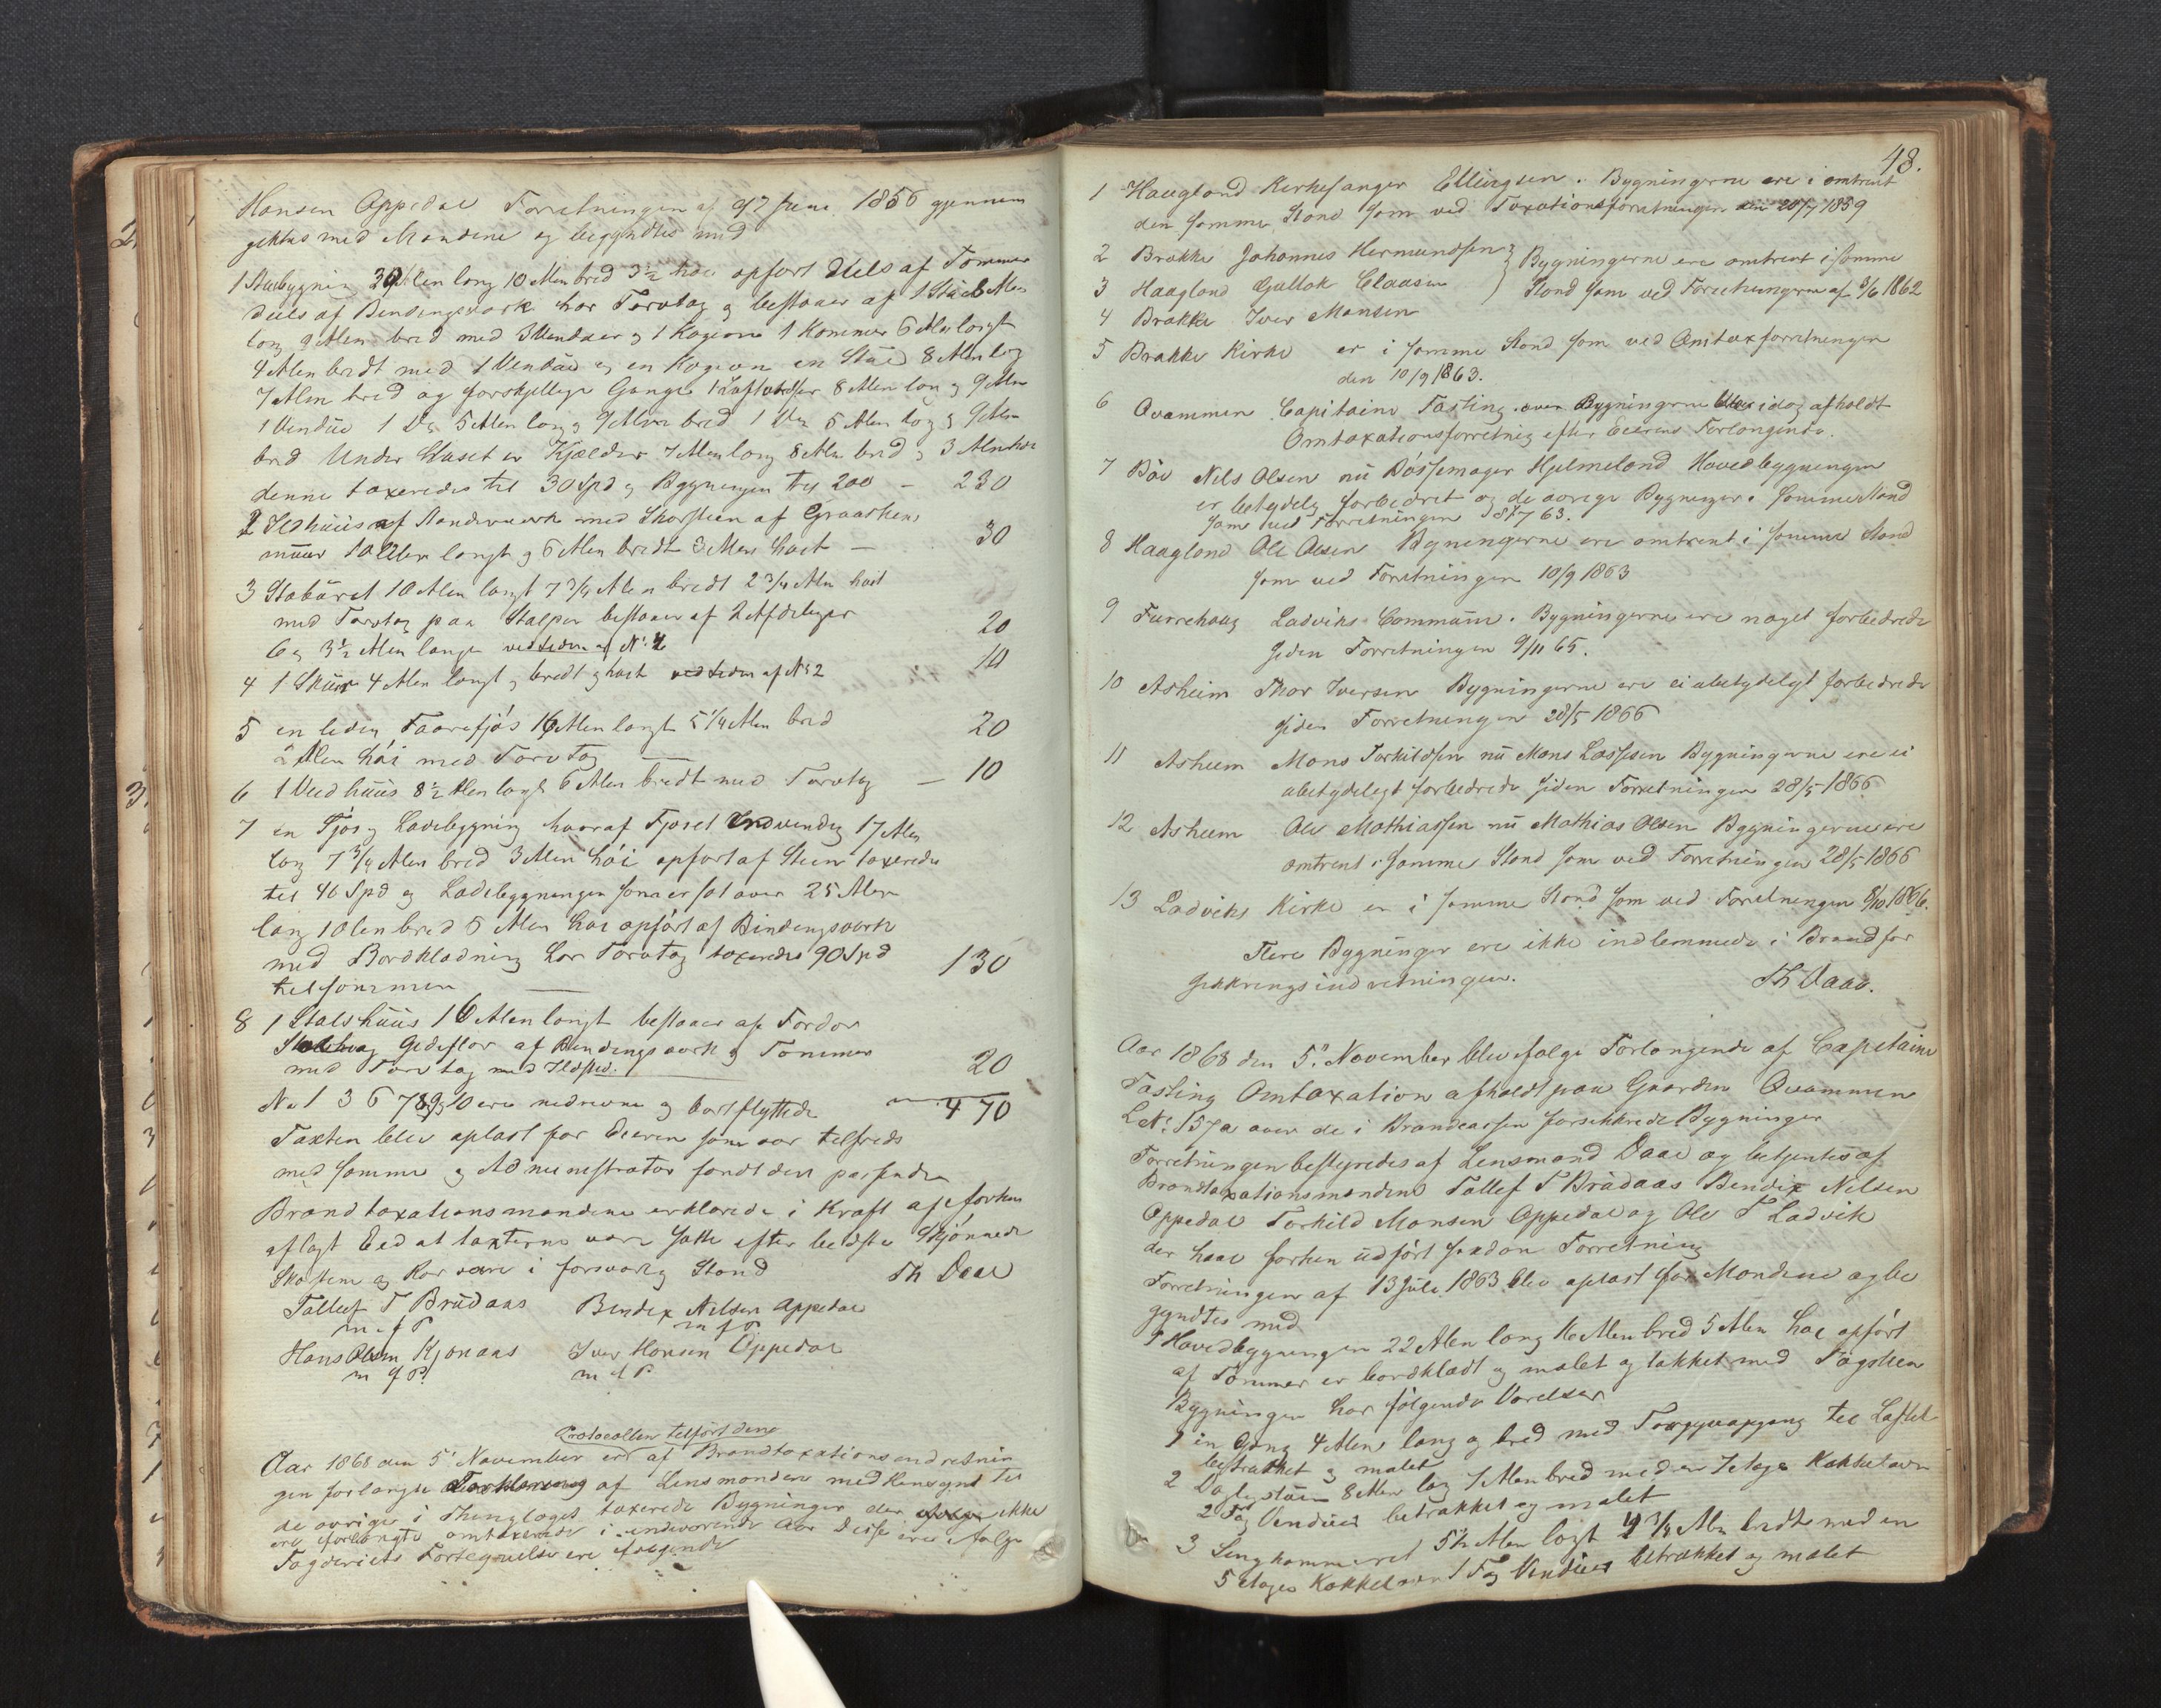 Hansen Oppedal Forretningen af 27 Juni 1856 gjennem
gikkes med Mændene og begyndtes med
1 Stuebygning 30 Alen lang 10 Alen bred 3½ høi opført deels af Tømmer
deels af Bindingsværk har Torvtag og bestaaer af 1 Stue 8 Alen
lang 9 Alen bred med 3 Venduer og 1 Kogeovn 1 Kammer 6 Alen langt
4 Alen bredt med 1 Vendue og en Kogeovn en Stue 8 Alen lang
7 Alen bred og forskjellige Gange 1 Loftværelser 8 Alen lang og 9 Alen
1 Vendue 1 Do 5 Alen lang 9 Alen bred 1 Do 5 Alen lang og 9 Alen
bred Under Huset er Kjælder 7 Alen lang 8 Alen bred og 3 Alen høi
denne taxeredes til 30 Spd og Bygningen til 200 – 230
2 Ildhuus af Standværk med Skorsteen af Graasteens
muur 10 Alen langt og 6 Alen bredt 3 Alen høit — 30
3 Stabúret 10 Alen langt 7 3/4 Alen bredt 2 3/4 Alen høit
med Torvtag paa Stolper bestaaer af 2 Afdelinger
6 og 3½ Alen lange ved siden af No 2 20
4 1 Skuur 4 Alen langt og bredt og høit ved siden af No 2 10
5 en liden Faarefjøs 16 Alen langt 5 1/4 Alen bred
2 Alen høi med Torvtag — 20
6 1 Vedhuus 8½ Alen langt 6 Alen bredt med Torvtag — 10
7 en Fjøs og Ladebygning hvoraf Fjøset Indvendig 17 Alen
lang 7 3/4 Alen bred 3 Alen høi opført af Steen taxeredes
til 40 Spd og Ladebygningen som er sat over 25 Alen
lang 10 Alen bred 5 Alen høi opført af Bindingsværk
med Bordklædning har Torvtag taxeredes 90 Spd
tilsammen — 130
8 1 Staldhuus 16 Alen langt bestaaer af Fordor
og Gedeflor af Bindingsværk og Tømmer
med Torvtag med Ildsted. 20
No 1 3 6 7 8 9 og 10 ere nedrevne og bortflyttede — 470
Taxten blev oplæst for Eieren som var tilfreds
med samme og Administrator fandt den passende
Brandtaxationsmændene erklærede i Kraft af forhen
aflagt Eed at taxterne vare satte efter bedste Skjønnede
Skorstene og Rør vare i forsvarlig Stand Th Daae
Tollef T Brúdaas Bendix Nilsen Oppedal
m f P m f P
Hans Olsen Kjønaas Iver Hansen Oppedal
m f P. m f P
Protocollen tilført dene
Aar 1868 den 5' November er af Brandtaxationsindretnin
gen forlangte Forklaring af Lensmanden med Hensynd til
de øvrige i Thinglaget taxerede Bygninger der ikke
ere forlangte omtaxerede i indeværende Aar Disse ere ifølge
Fogderiets Fortegnelse ere følgende
48.
1 Haugland Kirkesanger Ellingsen. Bygningerne ere i omtrent
den samme Stand som ved Taxationsforretningen den 28/7 1859
2 Brække Johannes Hermundsen } Bygningerne ere omtrent i samme
3 Haagland Gullak Claasen } Stand som ved Forretningerne af 3/6 1862
4 Brække Iver Monsen
5 Brække Kirke er i samme Stand som ved Omtaxforretningen
den 10/9 1863.
6 Qvammen Capitaine Fasling over Bygningerne blev idag afholdt
Omtaxationsforretning efter Eierens Forlangende.
7 Bøe Nils Olsen nú Bøssemager Hjelmeland Hovedbygningen
er betydelig forbedret og de øvrige Bygninger i samme Stand
som ved Forretningen 8/7 63.
8 Haagland Ole Olsen Bygningerne ere omtrent i samme Stand
som ved Forretningen 10/9 1863
9 Furrehaug Ladviks Commune. Bygningerne ere noget forbedrede
siden Forretningen 9/11 65.
10 Asheim Thor Iversen Bygningerne ere ei ubetydeligt forbedrede
siden Forretningen 28/5 1866
11 Asheim Mons Torkildsen nú Mons Lassesen Bygningerne ere ei
ubetydeligt forbedrede siden Forretningen 28/5 1866
12 Asheim Ole Mathiassen nú Mathias Olsen Bygningerne ere
omtrent i samme Stand som ved Forretningen 28/5 1866
13 Ladviks Kirke er i samme Stand som ved Forretningen 8/10 1866.
Flere Bygninger ere ikke indlemmede i Brandfor
sikkringsindretningen. Th Daae.
Aar 1868 den 5' November blev ifølge Forlangende af Capitaine
Fasling Omtaxation afholdt paa Gaarden Qvammen
L No 157a over de i Brandcassen forsikkrede Bygninger
Forretningen bestyredes af Lensmand Daae og betjentes af
Brandtaxationsmændene Tollef T Brúdaas Bendix Nilsen
Oppedal Torkild Monsen Oppedal og Ole T Ladvik
der have forhen udført saadan Forretning
Forretningen af 13 Juli 1863 blev oplæst for Mændene og be
gyndtes med
1 Hovedbygningen 22 Alen lang 16 Alen bred 5 Alen høi opført
af Tømmer er bordklædt og malet og takket med Tagsteen
Bygningen har følgende Værelser
1 en Gang 4 Alen lang og bred med Trappeopgang til Loftet
betrækket og malet
2 Daglystue 8 Alen lang 7 Alen bred med en 3 etages Kakkelovn
2 Fag Venduer betrækket og malet
3 Sengkammeret 5½ Alen langt 4 3/4 Alen bredt med en
5 etages Kakkelovn 1 Fag Venduer betrækket og malet